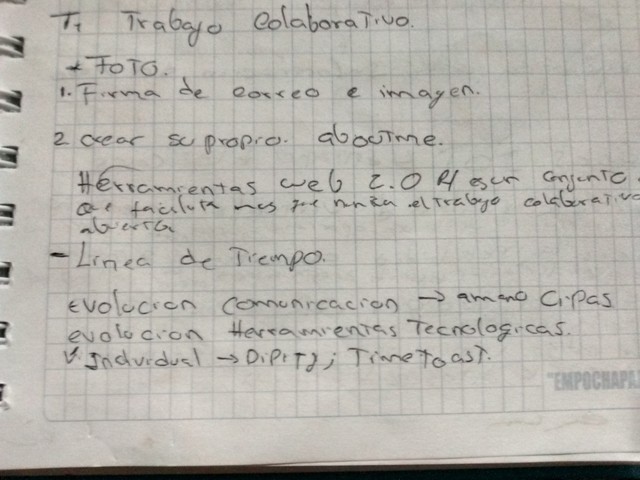 T1 Trabajo Colaborativo.
* FOTO.
1. Firma de correo e imagen.
2 crear su propio. aboutme.
Herramientas web 2.0 R/ es un conjunto.
que facilita mas que nunca el trabajo colaborativo
abierta
- Linea de Tiempo.
Evolucion comunicacion → a mano Cipas
evolucion Herramientas Tecnologicas.
V. Individual → Dipity; Timetoast.
"EMPOCHAPA